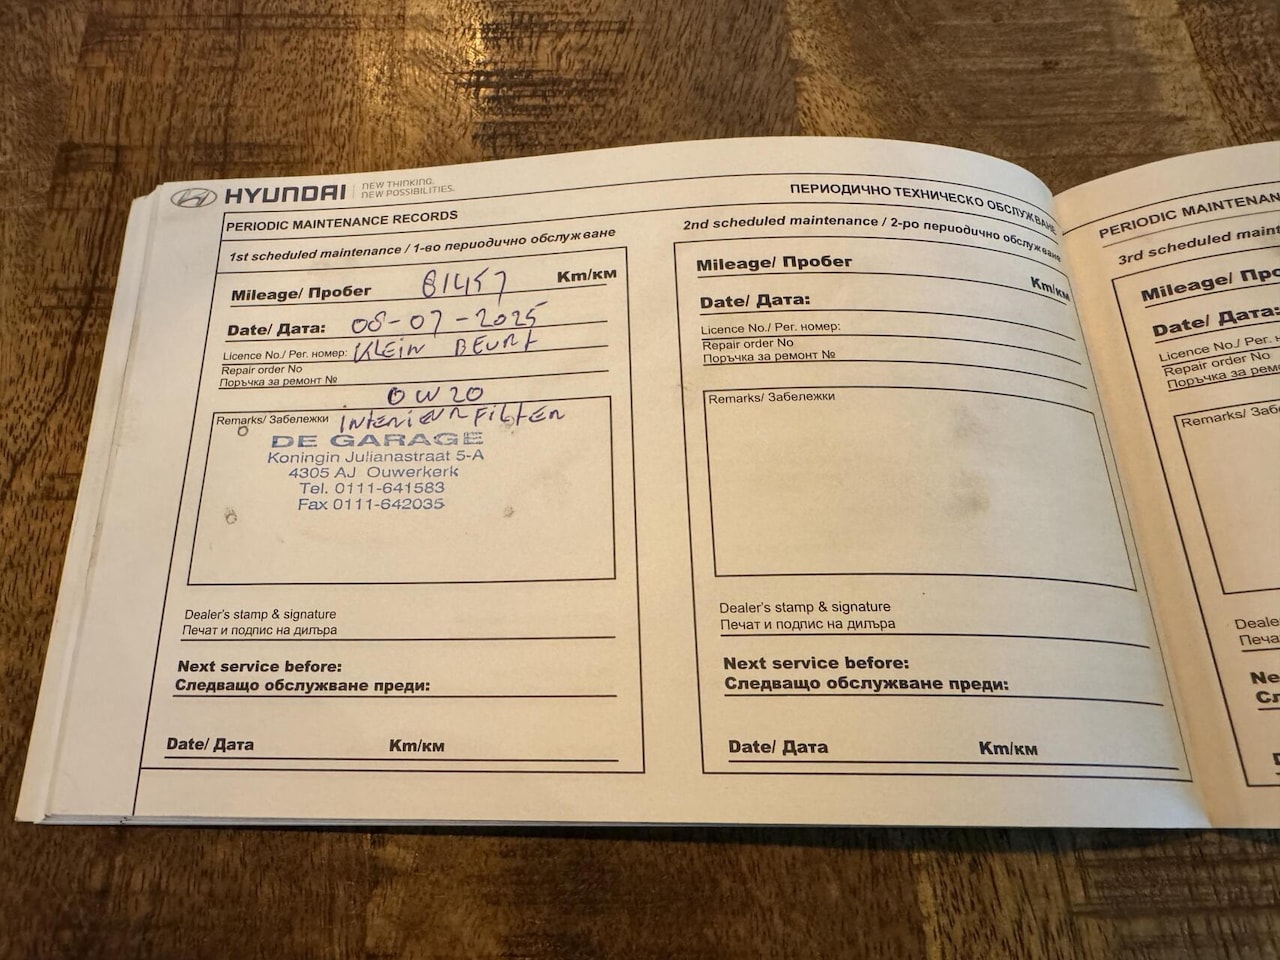 HYUNDAI
NEW THINKING.
NEW POSSIBILITIES.
PERIODIC MAINTENANCE RECORDS
ПЕРИОДИЧНО ТЕХНИЧЕСКО ОБСЛУЖВАНЕ
1st scheduled maintenance / 1-во периодично обслужване
Mileage/ Пробег 81457 Km/км
Date/ Дата: 08-07-2025
Licence No./ Рег. номер: KLEIN BEURT
Repair order No
Поръчка за ремонт №
0W20
Remarks/ Забележки INTERIEUR FILTER
DE GARAGE
Koningin Julianastraat 5-A
4305 AJ Ouwerkerk
Tel. 0111-641583
Fax 0111-642035
Dealer's stamp & signature
Печат и подпис на дилъра
Next service before:
Следващо обслужване преди:
Date/ Дата Km/км
2nd scheduled maintenance / 2-ро периодично обслужване
Mileage/ Пробег Km/км
Date/ Дата:
Licence No./ Рег. номер:
Repair order No
Поръчка за ремонт №
Remarks/ Забележки
Dealer's stamp & signature
Печат и подпис на дилъра
Next service before:
Следващо обслужване преди:
Date/ Дата Km/км
PERIODIC MAINTENAN
3rd scheduled maint
Mileage/ Про
Date/ Дата:
Licence No./ Рег.
Repair order No
Поръчка за рем
Remarks/ Забе
Deale
Печа
Ne
Сл